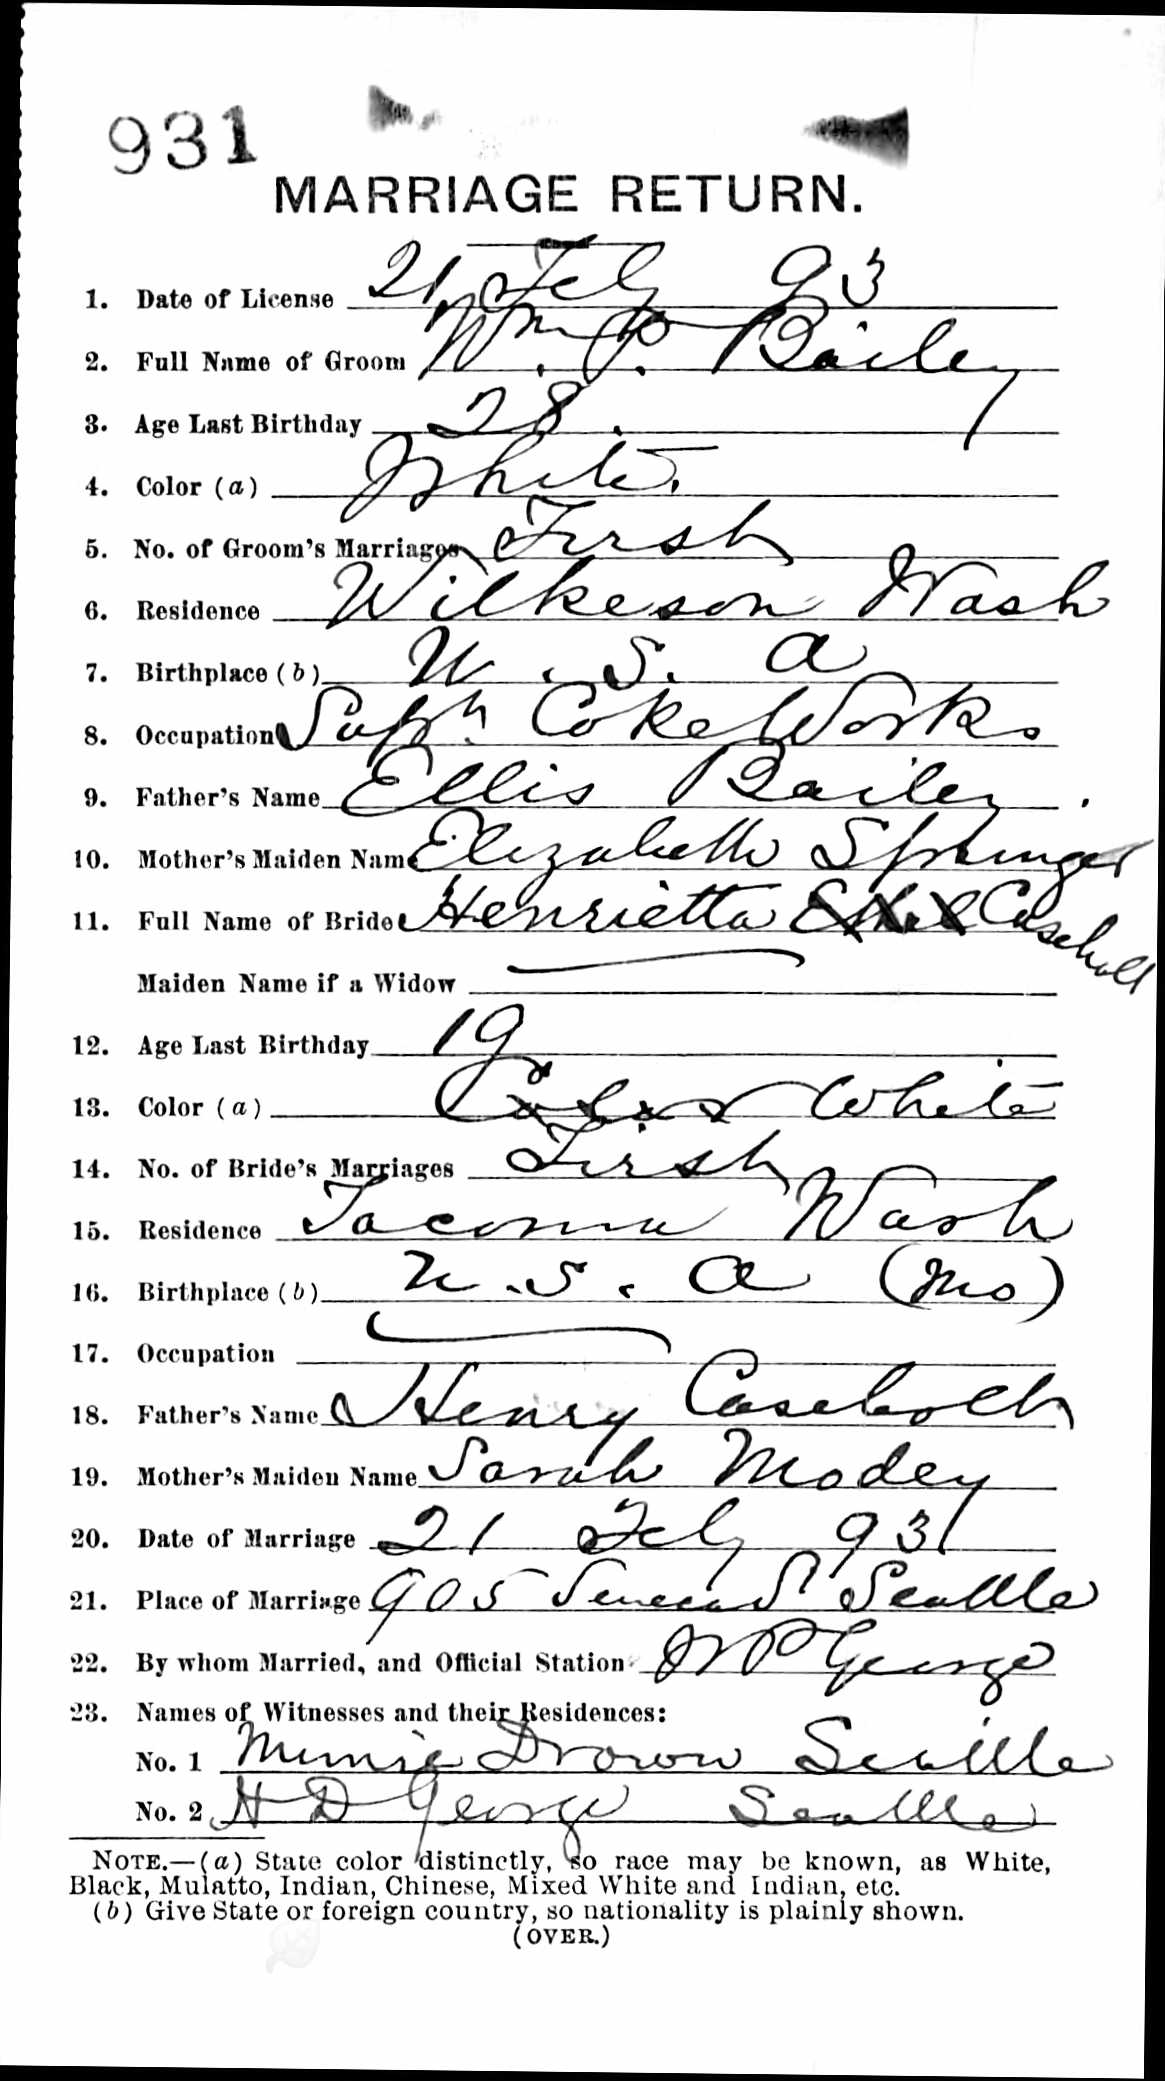 931
MARRIAGE RETURN.
1. Date of License 21 Feby 93
2. Full Name of Groom Wm. P. Bailey
3. Age Last Birthday 28.
4. Color (a) White.
5. No. of Groom's Marriages First
6. Residence Wilkeson Wash
7. Birthplace (b) U. S. A
8. Occupation Supt. Coke Works
9. Father's Name Ellis Bailey.
10. Mother's Maiden Name Elizabeth Springer
11. Full Name of Bride Henrietta
Maiden Name if a Widow
12. Age Last Birthday 19
13. Color (a) White
14. No. of Bride's Marriages First
15. Residence Tacoma Wash
16. Birthplace (b) U.S.A (Mo)
17. Occupation
18. Father's Name Henry Casebolt
19. Mother's Maiden Name Sarah Modey
20. Date of Marriage 21 Feby 93
21. Place of Marriage 905 Seneca St Seattle
22. By whom Married, and Official Station W P George
23. Names of Witnesses and their Residences:
No. 1 Minnie Drown Seattle
No. 2 H D George Seattle
NOTE.—(a) State color distinctly, so race may be known, as White,
Black, Mulatto, Indian, Chinese, Mixed White and Indian, etc.
(b) Give State or foreign country, so nationality is plainly shown.
(OVER.)